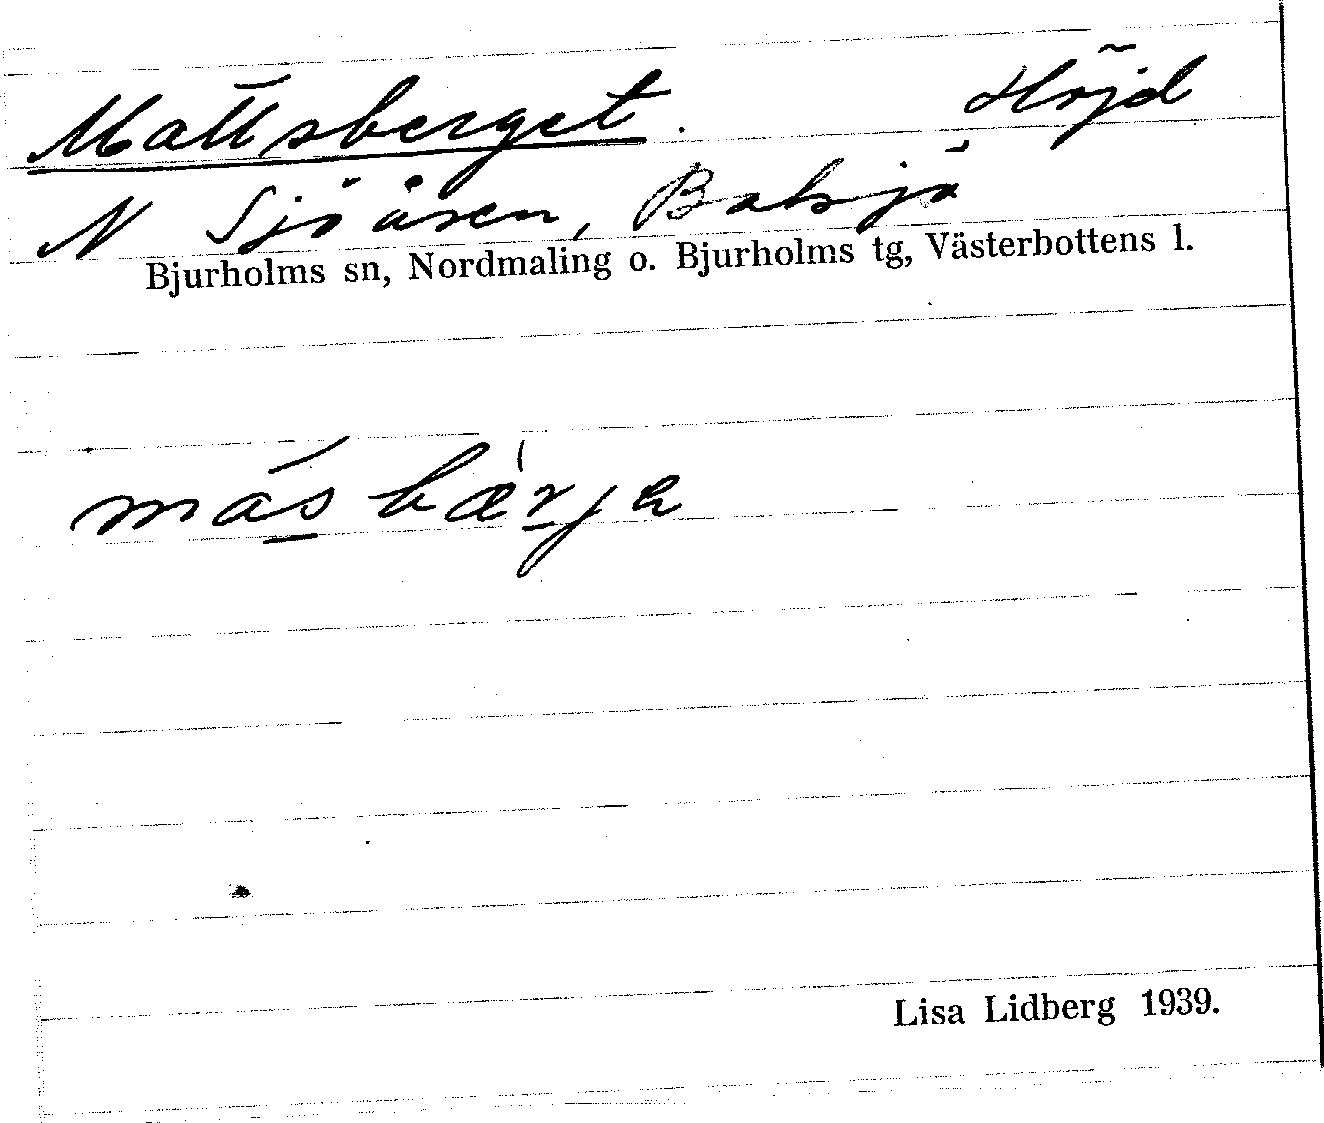 Mattsberget. Höjd
N Sjöåsen, Balsjö
Bjurholms sn, Nordmaling o. Bjurholms tg, Västerbottens l.
másbæ̀rja
Lisa Lidberg 1939.